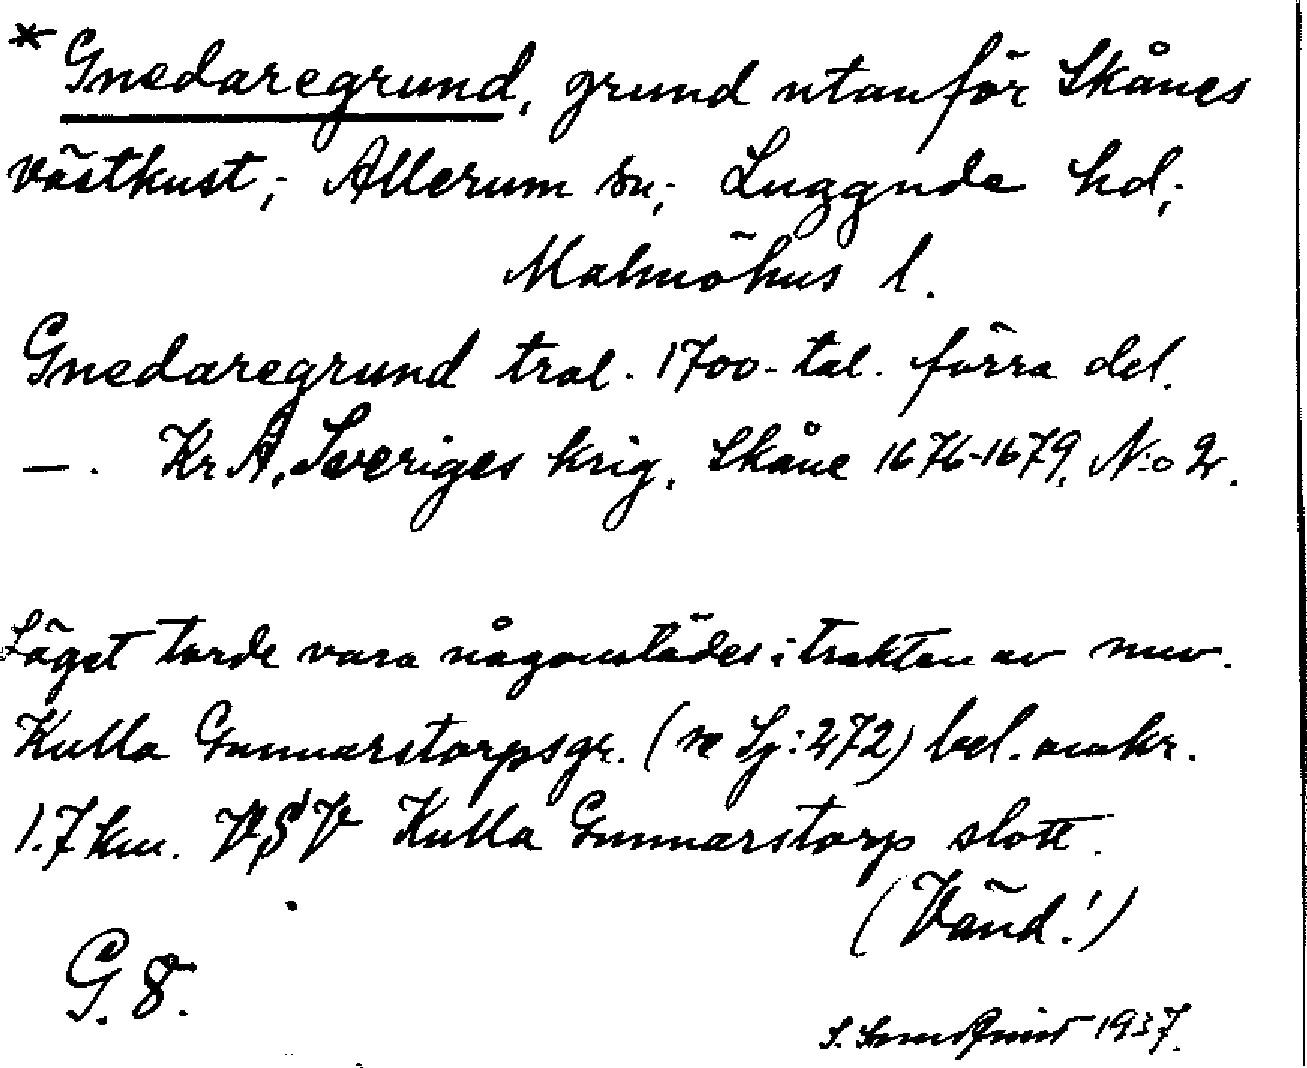 * Gnedaregrund, grund utanför Skånes
västkust; Allerum sn; Luggude hd;
Malmöhus l.
Gnedaregrund trol. 1700-tal. förra del.
— . KrA, Sveriges krig, Skåne 1676-1679, N:o 2.
Läget torde vara någonstädes i trakten av nuv.
Kulla Gunnarstorpsgr. (se Sj:272) bel. omkr.
1.7 km. VSV Kulla Gunnarstorp slott.
(Vänd!)
G. 8.
S. 1937.